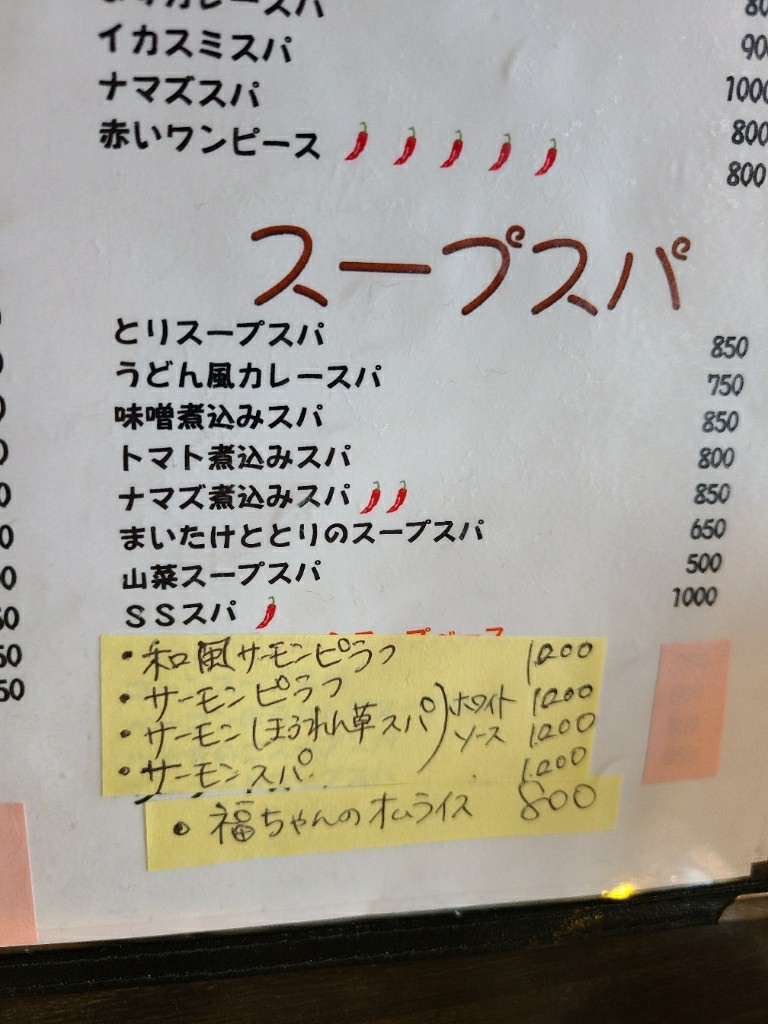 カレースパ 80
イカスミスパ 900
ナマズスパ 1000
赤いワンピース 800
800
スープスパ
とりスープスパ 850
うどん風カレースパ 750
味噌煮込みスパ 850
トマト煮込みスパ 800
ナマズ煮込みスパ 850
まいたけととりのスープスパ 650
山菜スープスパ 500
SSスパ 1000
・和風サーモンピラフ 1,200
・サーモンピラフ 1,200
・サーモンほうれん草スパ)ホワイトソース 1,200
・サーモンスパ 1,200
・福ちゃんのオムライス 800
0
50
50
50